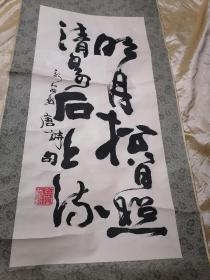 明月松間照
清泉石上流
唐詩句